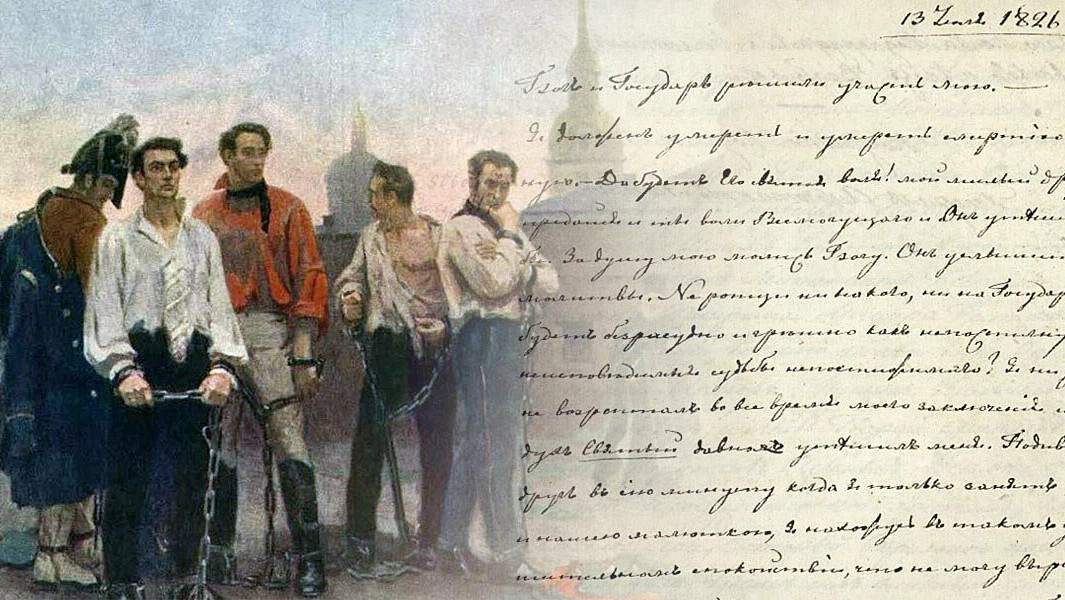 13 Іюля 1826
Богъ и Государь рѣшили участь мою. —
Я долженъ умереть и умереть смертію
ною. — Да будетъ Его святая воля! мой милый др
предайся и ты волѣ Всемогущаго и Онъ утѣши
За душу мою молись Богу. Онъ услышитъ
молитвы. Не ропщи ни на кого, ни на Государ
будетъ безрасудно и грѣшно
неисповѣдимые судьбы непостижимаго? Я ни
не возропталъ во все время моего заключенія и
духъ Святый дивно утѣшилъ меня. Подив
другъ въ сію минуту когда я только занятъ
и нашею малюткою, я нахожусь въ такомъ
шительномъ спокойствіи, что не могу выра